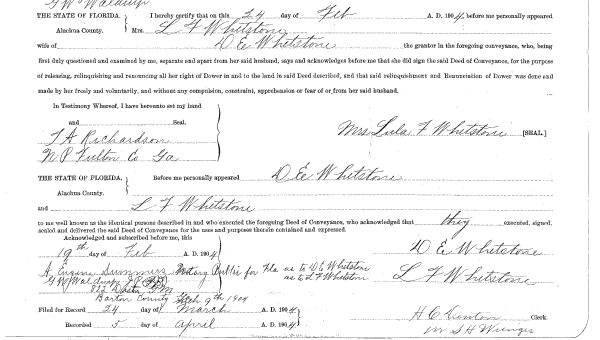 THE STATE OF FLORIDA, I hereby certify that on this 24 day of Feb A. D. 1904, before me personally appeared
Alachua County. Mrs. L F Whetstone
wife of D E Whetstone the grantor in the foregoing conveyance, who, being
first duly questioned and examined by me, separate and apart from her said husband, says and acknowledges before me that she did sign the said Deed of Conveyance, for the purpose
of releasing, relinquishing and renouncing all her right of Dower in and to the land in said Deed described, and that said relinquishment and Renunciation of Dower was done and
made by her freely and voluntarily, and without any compulsion, constraint, apprehension or fear of or from her said husband.
In Testimony Whereof, I have hereunto set my hand
and Seal.
Mrs Lula F Whetstone [SEAL.]
T A Richardson
N P Fulton Co Ga
THE STATE OF FLORIDA, Before me personally appeared D E Whetstone
Alachua County.
and L F Whetstone
to me well known as the identical persons described in and who executed the foregoing Deed of Conveyance, who acknowledged that they executed, signed,
sealed and delivered the said Deed of Conveyance for the uses and purposes therein contained and expressed.
Acknowledged and subscribed before me, this
19th day of Feb A. D. 1904 D E Whetstone
A. Eugene Summers Notary Public for Fla as to D E Whetstone
as to L F Whetstone L F Whetstone
Barton County 9th 1904
Filed for Record 24 day of March A. D. 1904 H C Clerk.
Recorded 5 day of April A. D. 1904 S H